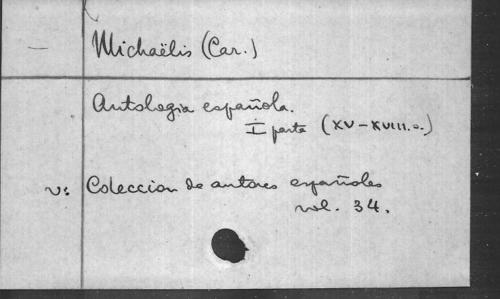 — Michaëlis (Car.)
Antologia española.
I parte (XV-XVIII.o.)
v: Coleccion de autores españoles
vol. 34.